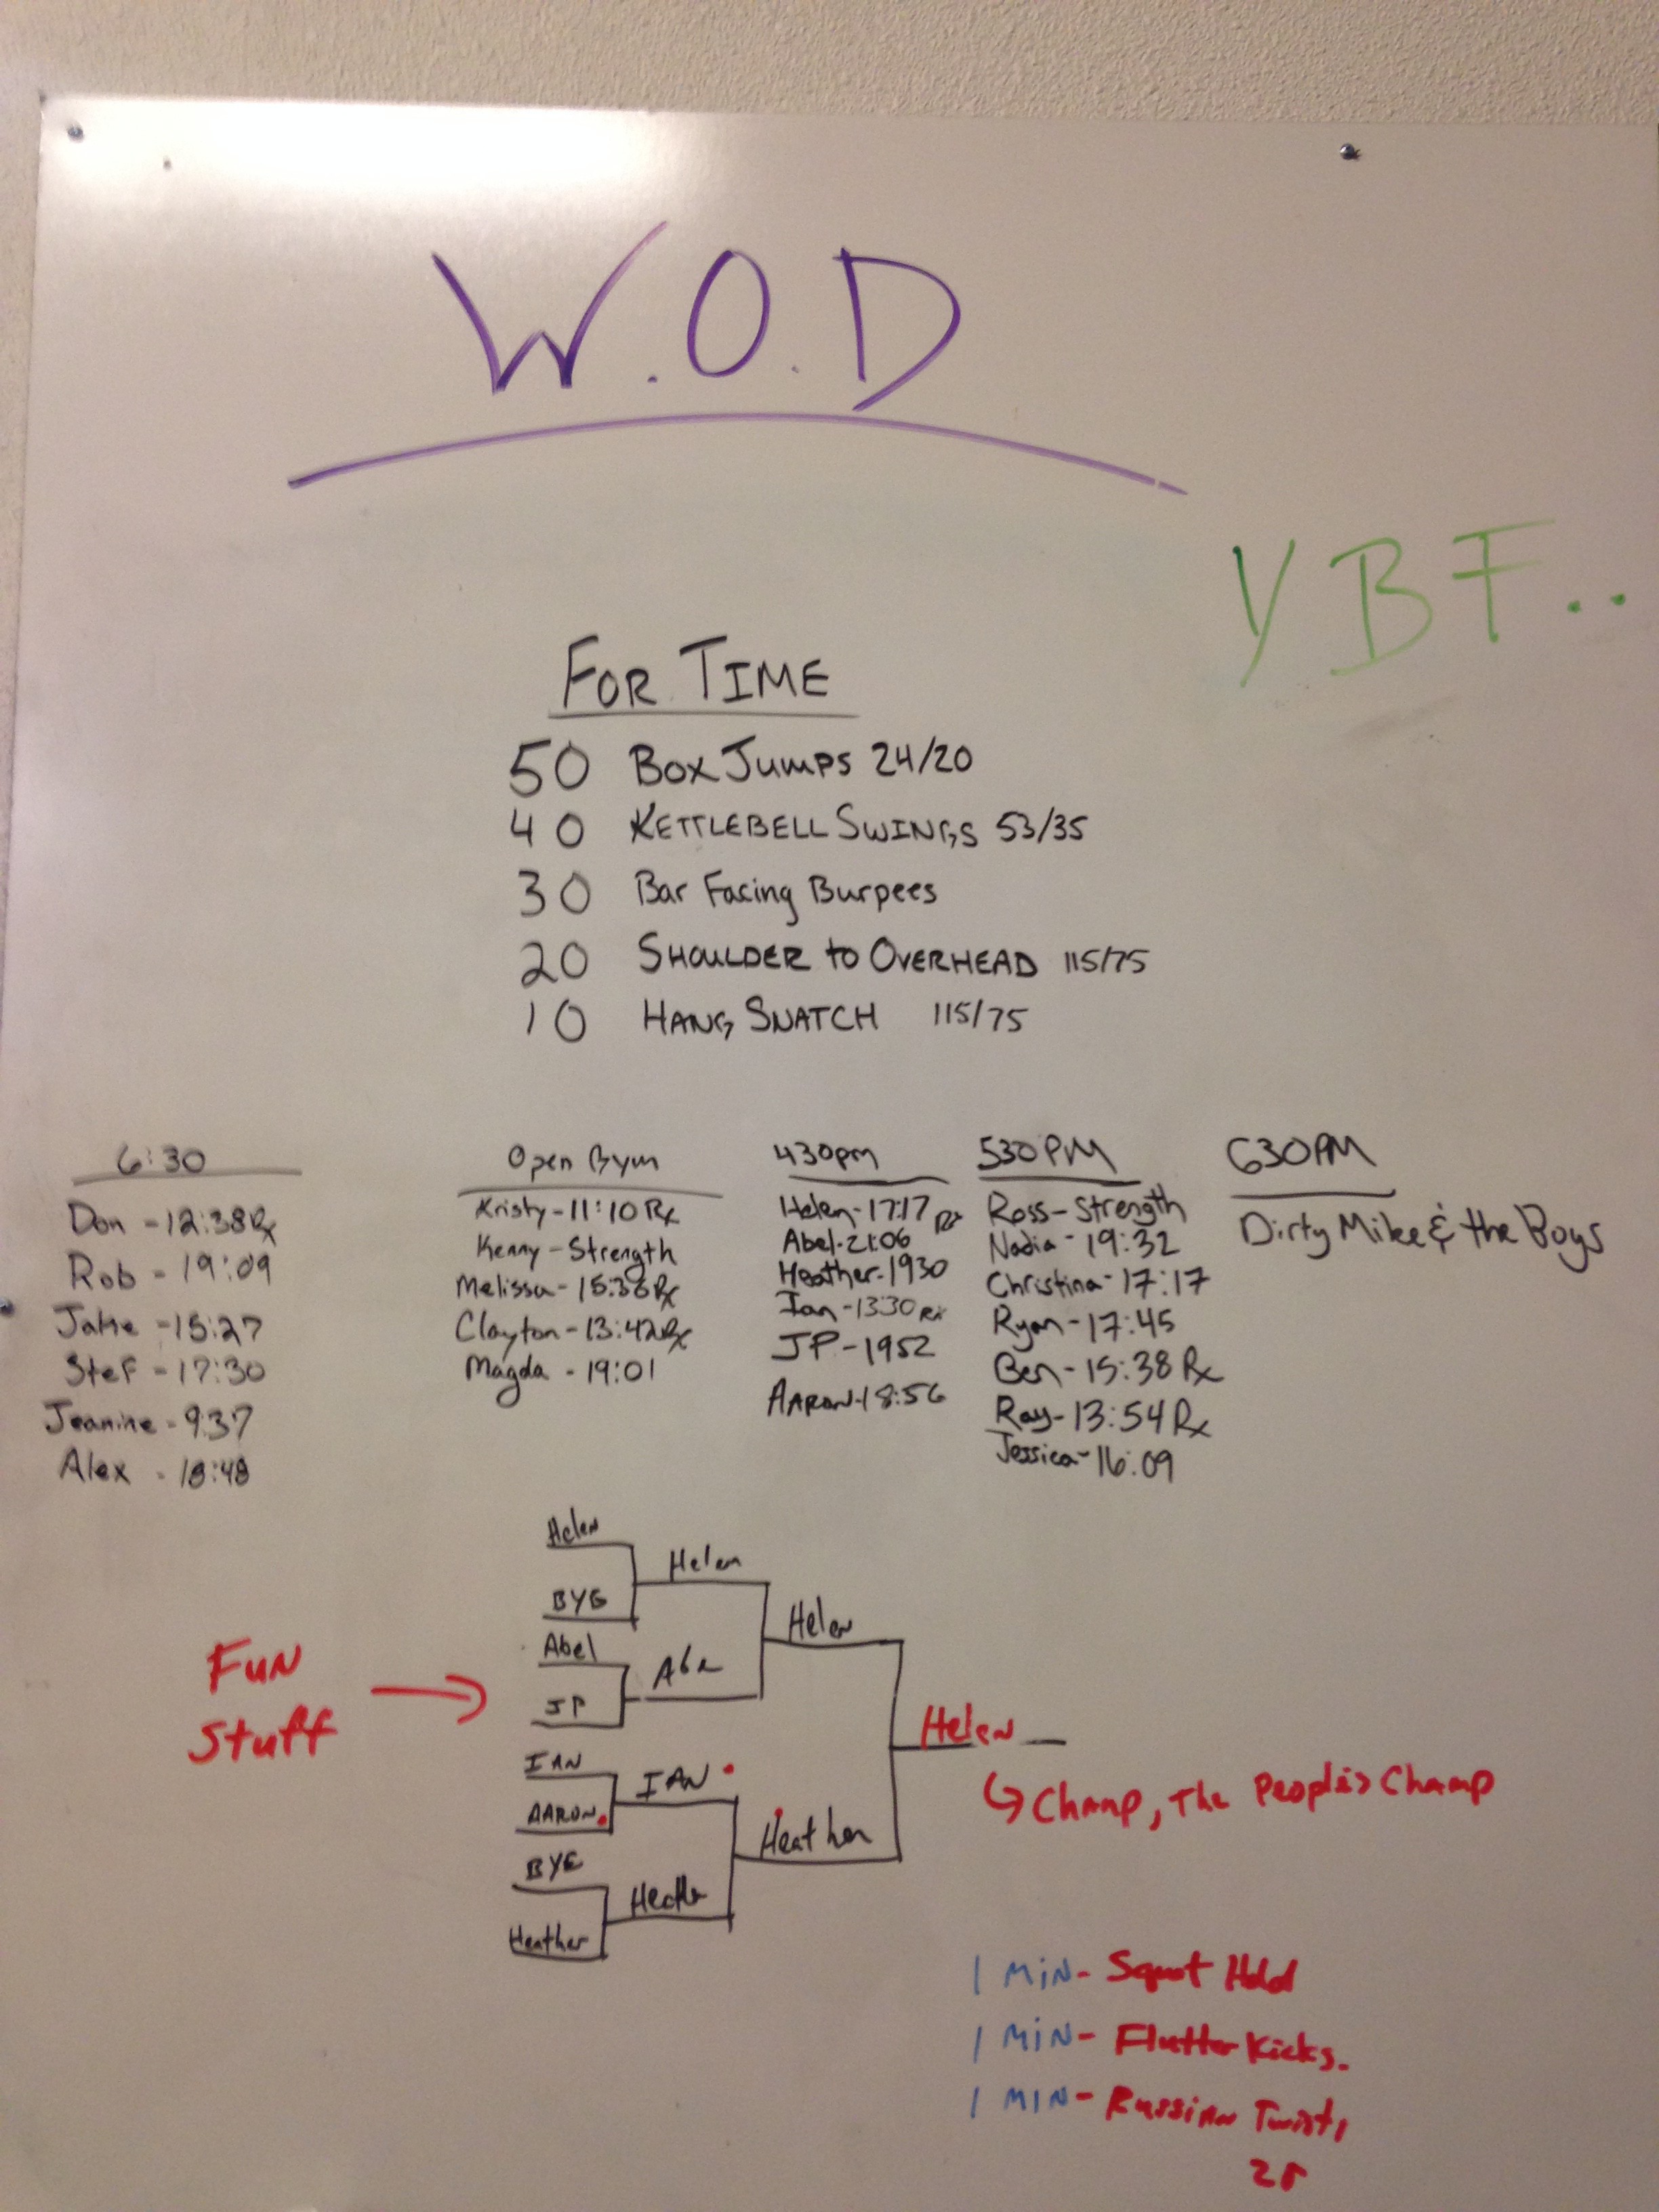 W.O.D
YBF..
FOR TIME
50 BOX JUMPS 24/20
40 KETTLEBELL SWINGS 53/35
30 Bar Facing Burpees
20 SHOULDER to OVERHEAD 115/75
10 HANG SNATCH 115/75
6:30
Don - 12:38 Rx
Rob - 19:09
Jake - 15:27
Stef - 17:30
Jeanine - 9:37
Alex - 18:48
Open Gym
Kristy - 11:10 Rx
Kenny - Strength
Melissa - 15:36 Rx
Clayton - 13:42 Rx
Magda - 19:01
430pm
Helen - 17:17 Rx
Abel - 21:06
Heather - 1930
Ian - 13:30 Rx
JP - 1952
AARON - 18:56
530 PM
Ross - Strength
Nadia - 19:32
Christina - 17:17
Ryan - 17:45
Ben - 15:38 Rx
Ray - 13:54 Rx
Jessica - 16:09
630 PM
Dirty Mike & the Boys
FUN
Stuff
Helen
BYE
Abel
JP
IAN
AARON
BYE
Heather
Helen
Abe
IAN
Heather
Helen
Heather
Helen
Champ, The People's Champ
1 MIN - Squat Hold
1 MIN - Flutter Kicks.
1 MIN - Russian Twists